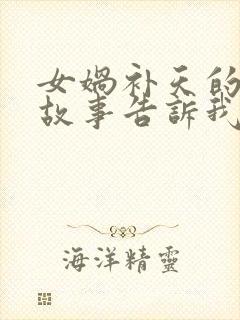 女媧补天的
故事告訴我
海洋精靈